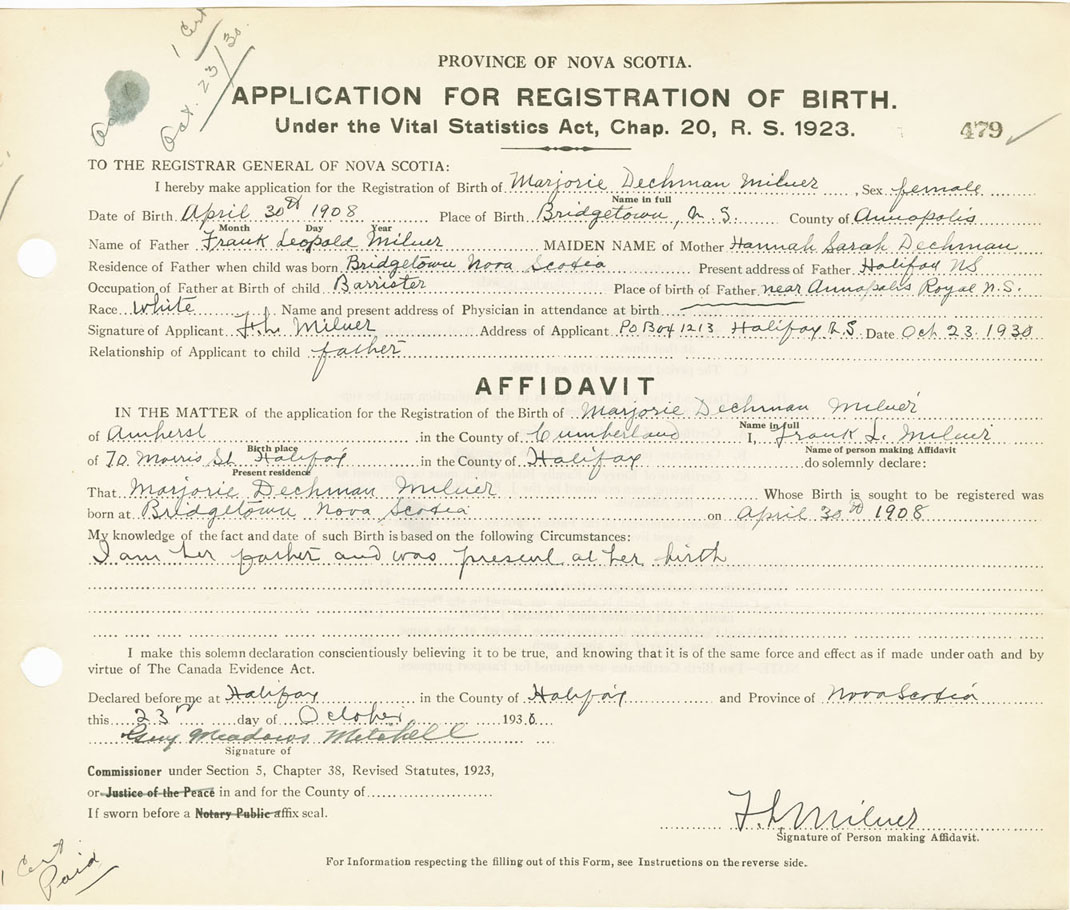 1 Cert
Oct. 23/30.
PROVINCE OF NOVA SCOTIA.
APPLICATION FOR REGISTRATION OF BIRTH.
Under the Vital Statistics Act, Chap. 20, R. S. 1923.
479
TO THE REGISTRAR GENERAL OF NOVA SCOTIA:
I hereby make application for the Registration of Birth of Marjorie Dechman Milner, Sex female
Name in full
Date of Birth April 30th 1908 Place of Birth Bridgetown, N.S. County of Annapolis
Month Day Year
Name of Father Frank Leopold Milner MAIDEN NAME of Mother Hannah Sarah Dechman
Residence of Father when child was born Bridgetown Nova Scotia Present address of Father Halifax NS
Occupation of Father at Birth of child Barrister Place of birth of Father near Annapolis Royal N.S.
Race White Name and present address of Physician in attendance at birth
Signature of Applicant F.L. Milner Address of Applicant P.O Box 1213 Halifax N.S. Date Oct 23. 1930
Relationship of Applicant to child father
AFFIDAVIT
IN THE MATTER of the application for the Registration of the Birth of Marjorie Dechman Milner
Name in full
of Amherst in the County of Cumberland I, Frank L. Milner
Birth place Name of person making Affidavit
of 70 Morris St Halifax in the County of Halifax do solemnly declare:
Present residence
That Marjorie Dechman Milner Whose Birth is sought to be registered was
born at Bridgetown Nova Scotia on April 30th 1908
My knowledge of the fact and date of such Birth is based on the following Circumstances:
I am her father and was present at her birth
I make this solemn declaration conscientiously believing it to be true, and knowing that it is of the same force and effect as if made under oath and by
virtue of The Canada Evidence Act.
Declared before me at Halifax in the County of Halifax and Province of Nova Scotia
this 23rd day of October 1930
Guy Meadows Mitchell
Signature of
Commissioner under Section 5, Chapter 38, Revised Statutes, 1923,
or Justice of the Peace in and for the County of
If sworn before a Notary Public affix seal.
F. L Milner
Signature of Person making Affidavit.
1 Cert
Paid
For Information respecting the filling out of this Form, see Instructions on the reverse side.